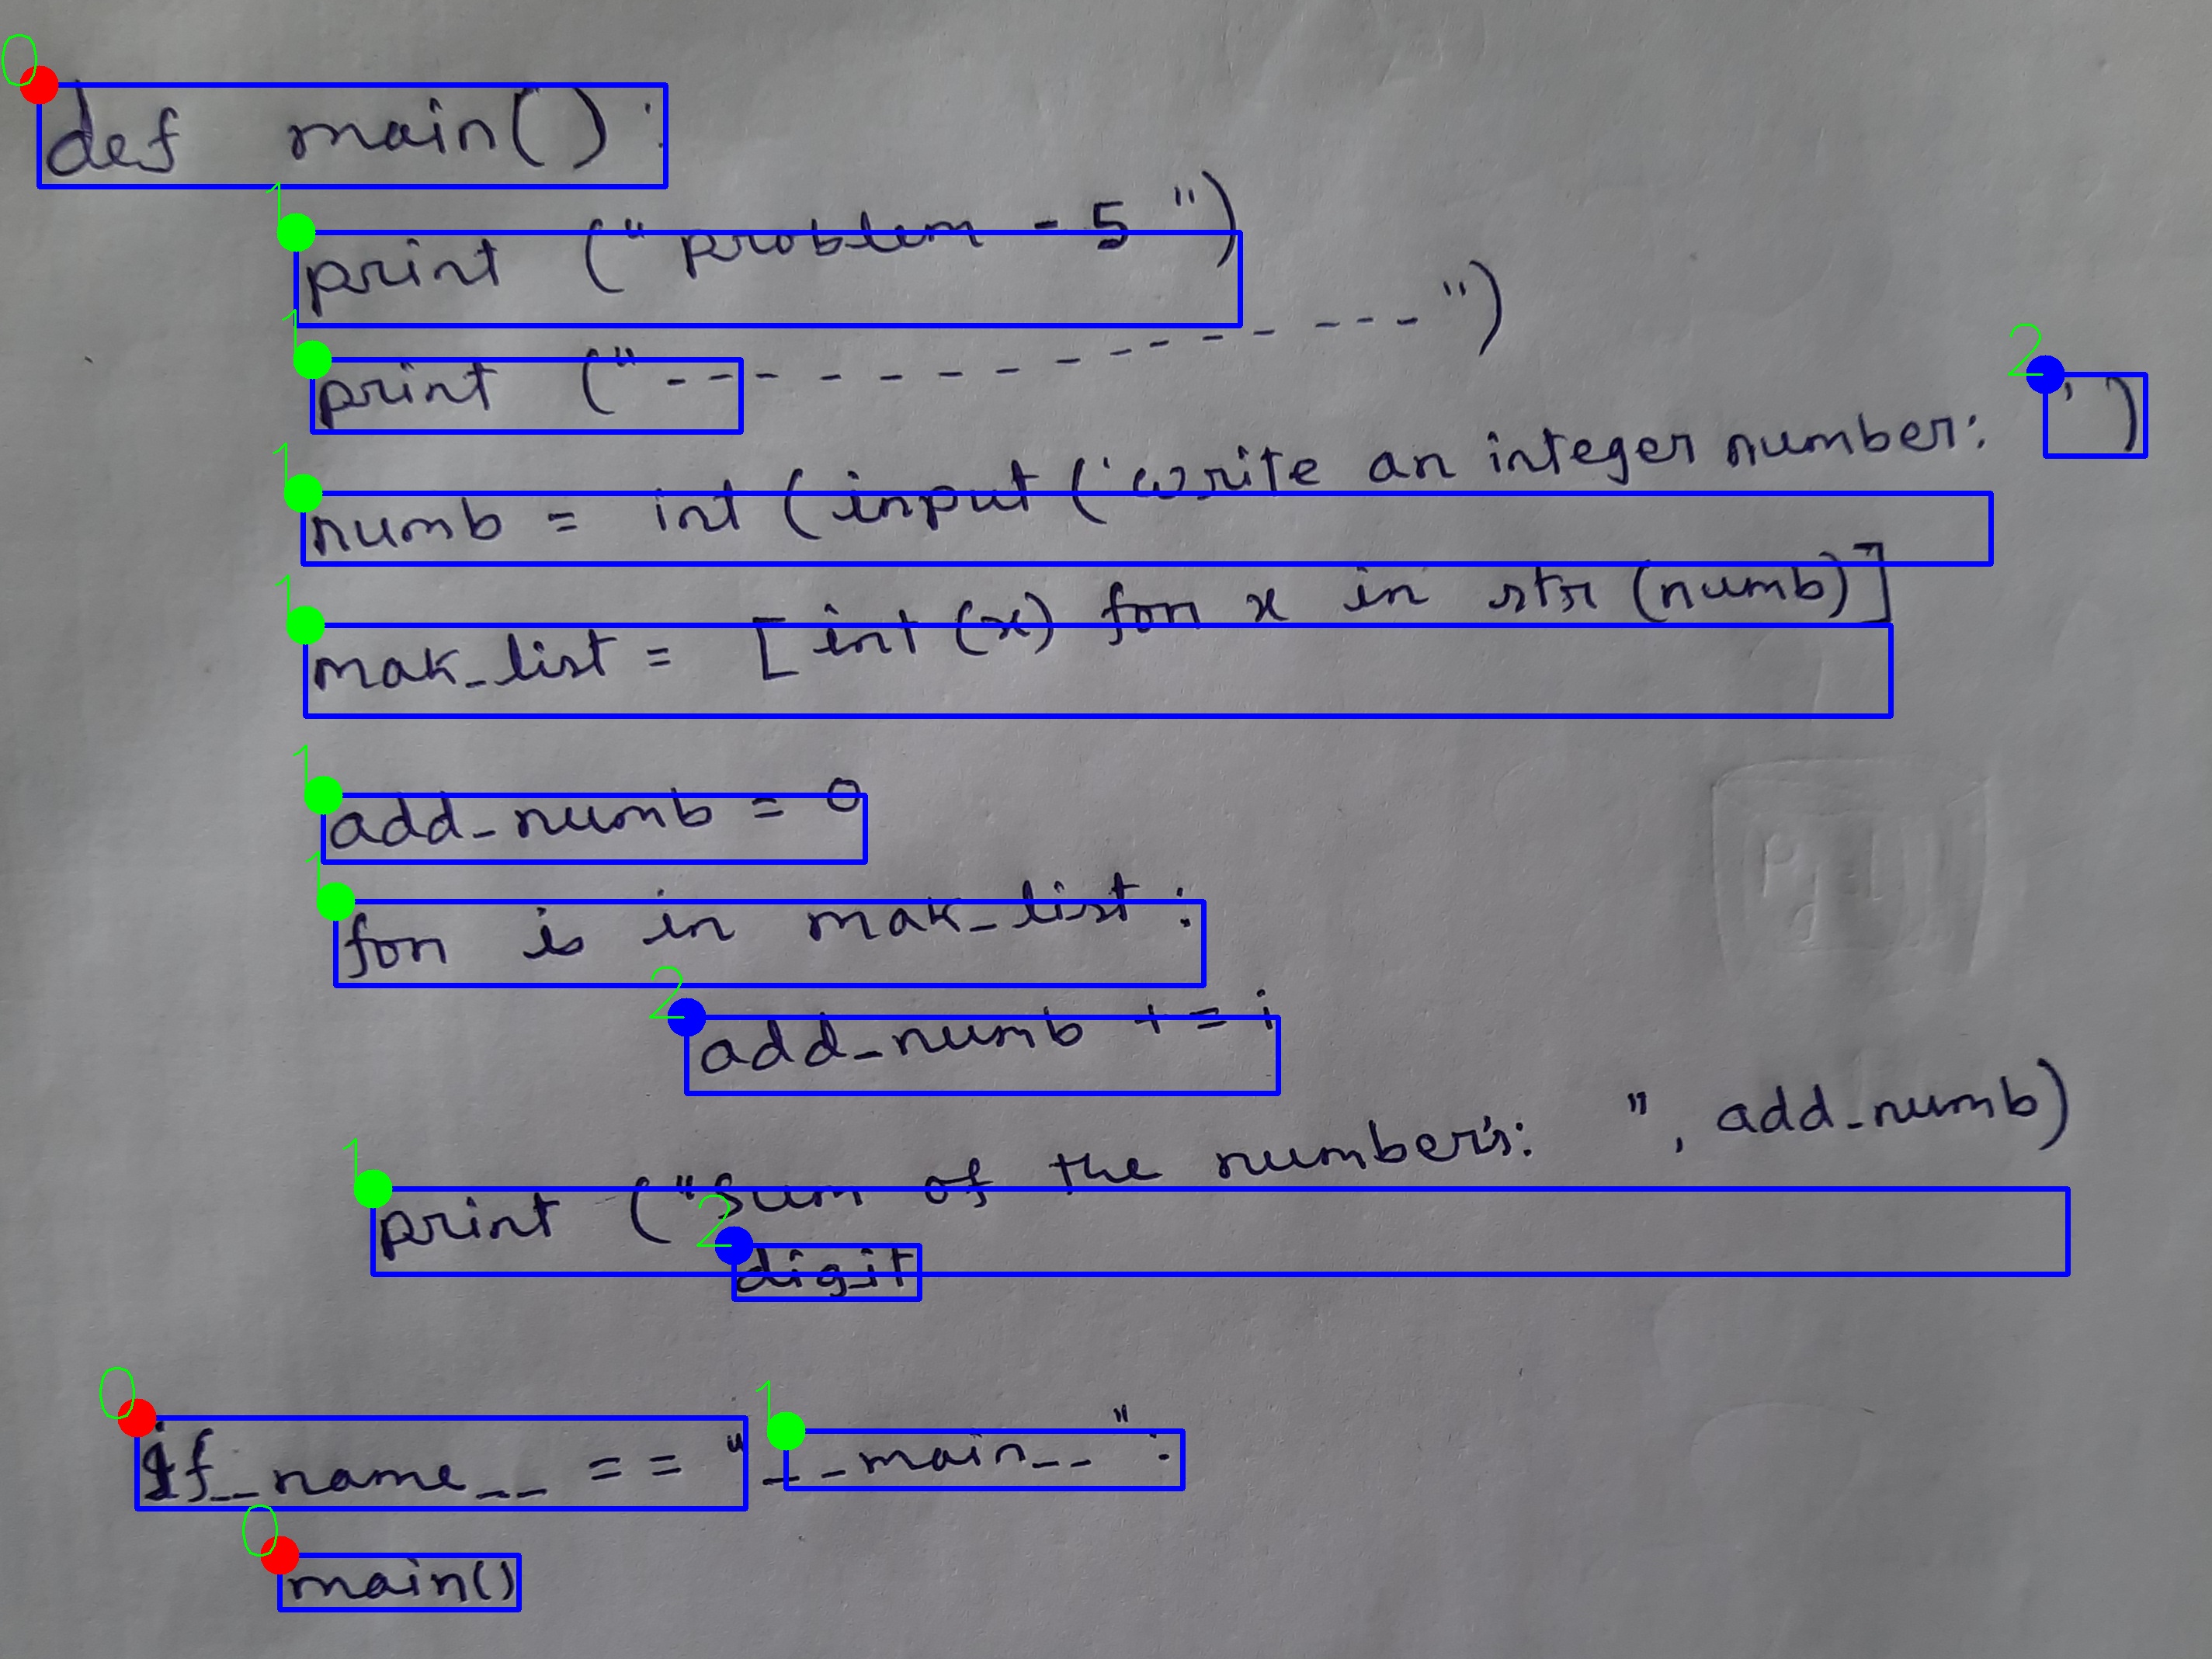 def main():
print ("problem - 5 ")
print ("--------------")
numb = int (input ('write an integer number: ')
mak_list = [int (x) for x in str (numb)]
add_numb = 0
for is in mak_list :
add_numb += i
print ("Sum of the number's: ", add_numb)
digit
if__name__ == "__main__":
main()